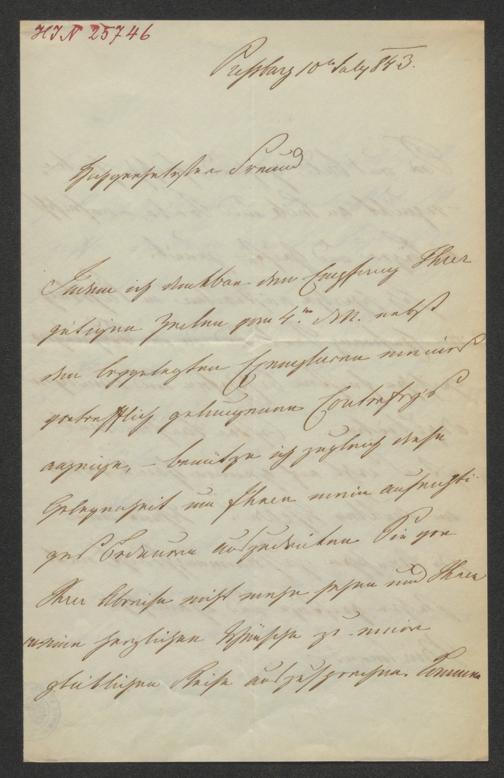 HIN 25746
Pressburg 10ten July 843.
Hochgeehrtester Freund
Indem ich dankbar den Empfang Ihrer
gütigen Zeilen vom 4ten d. M. nebst
den beygelegten Exemplaren meines
vortrefflich gelungenen Conterfey's
anzeige, – benütze ich zugleich diese
Gelegenheit um Ihnen mein aufrichti-
ges Bedauern auszudrücken Sie vor
Ihrer Abreise nicht mehr sehen und Ihnen
meine herzlichen Wünsche zu einer
glücklichen Reise aussprechen